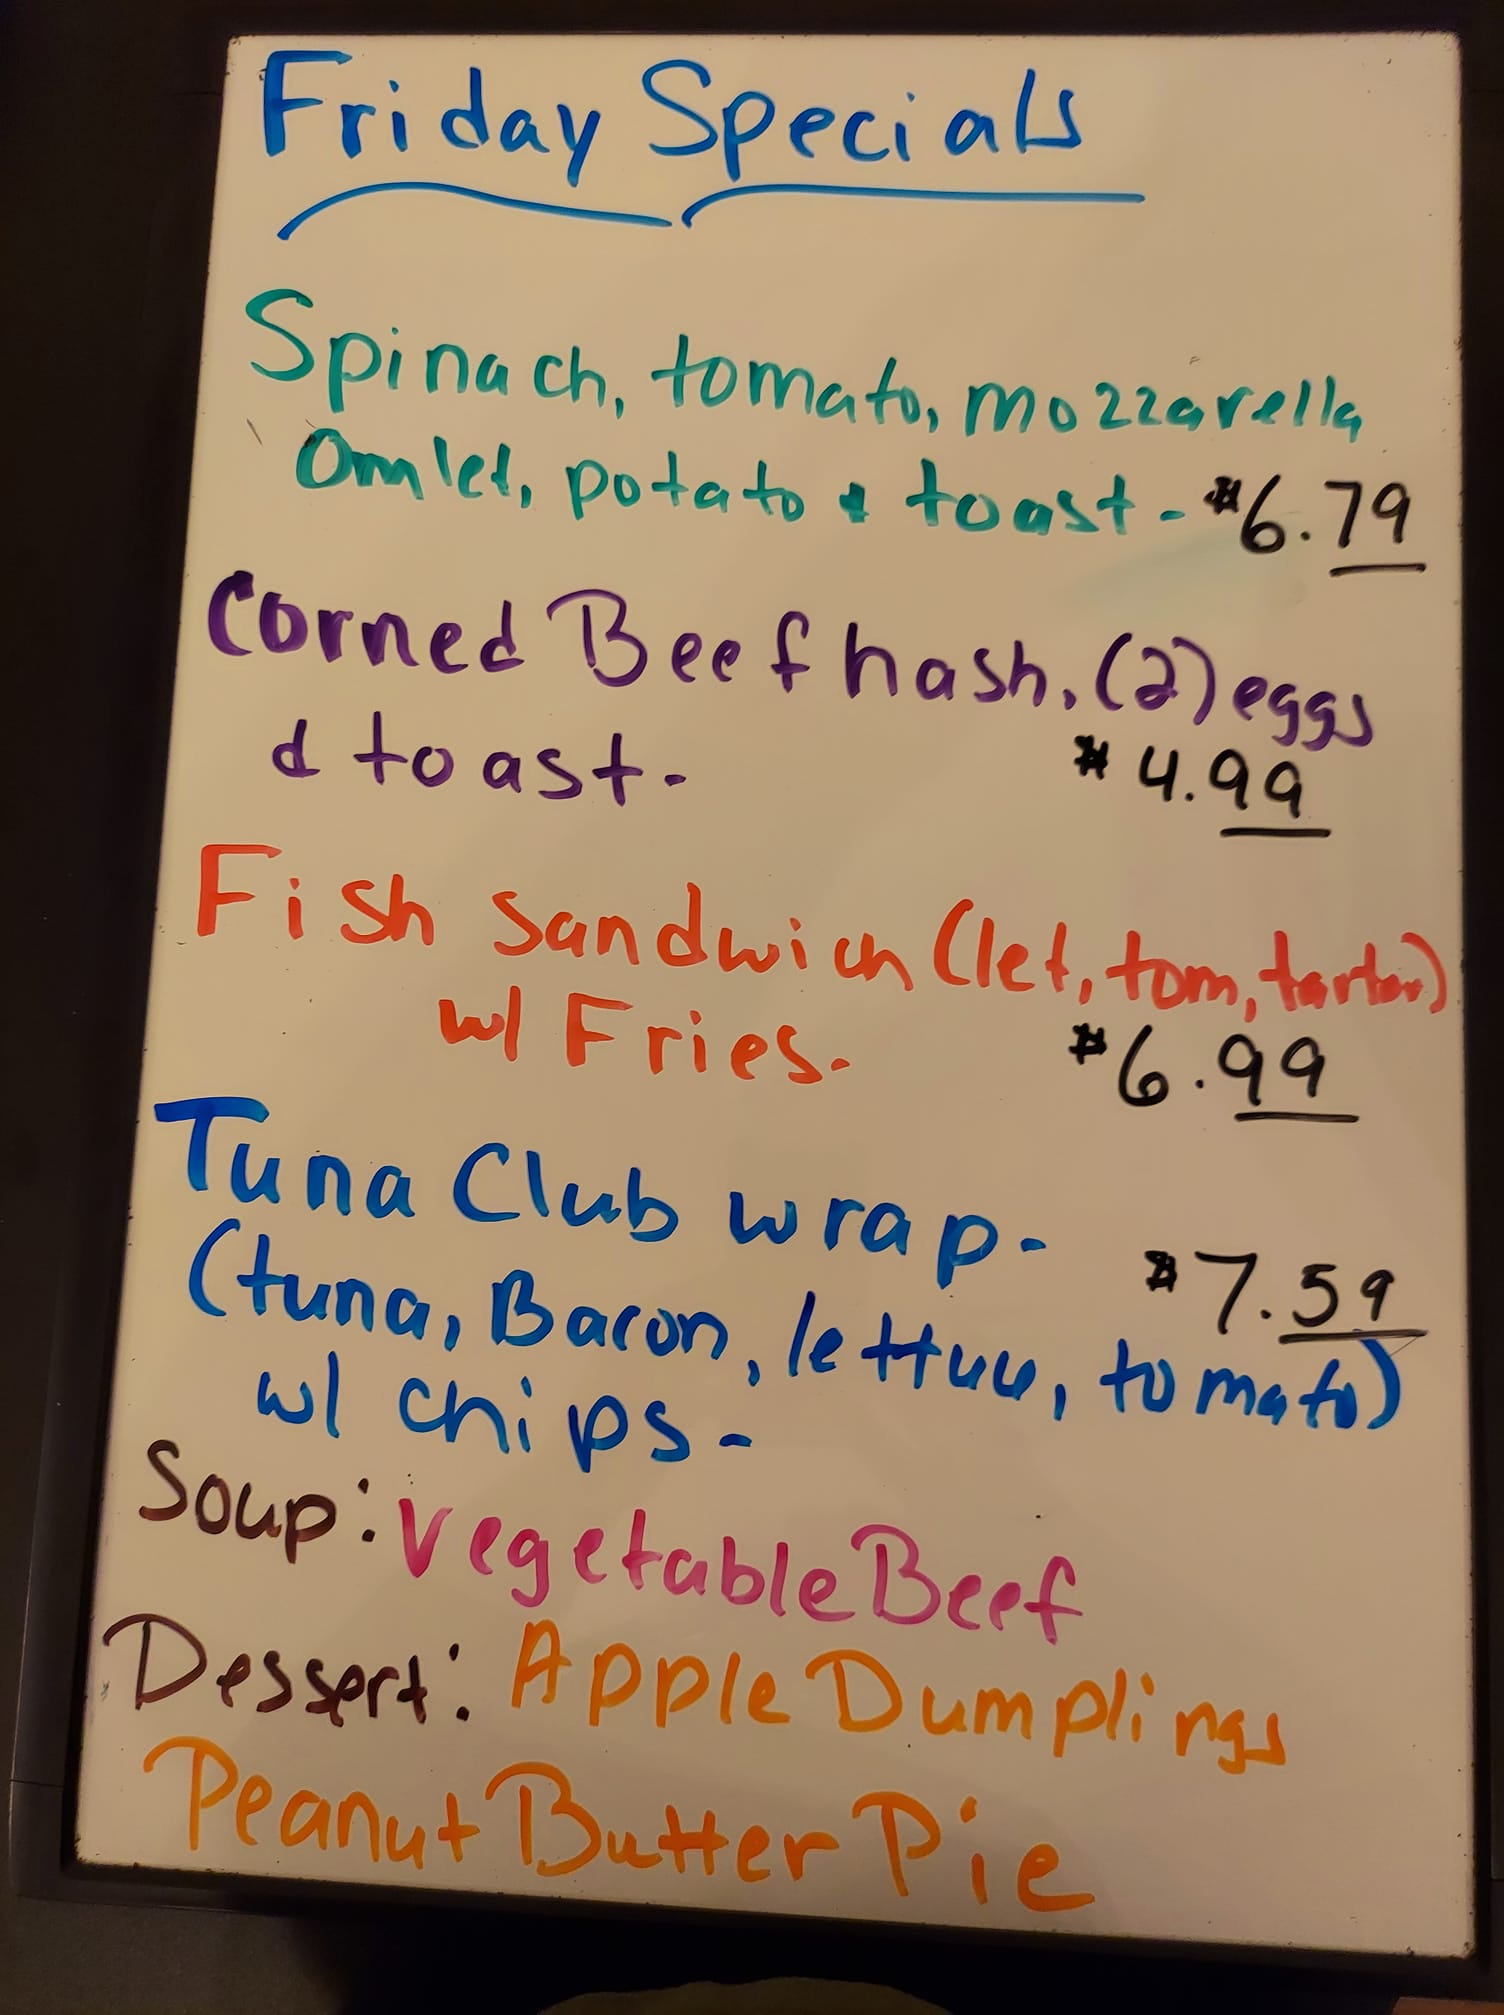 Friday Specials
Spinach, tomato, mozzarella
Omlet, potato & toast - $6.79
Corned Beef hash, (2) eggs
& toast - $4.99
Fish sandwich (let, tom, tartar)
w/ Fries - $6.99
Tuna Club wrap - $7.59
(tuna, Bacon, lettuce, tomato)
w/ chips -
Soup: Vegetable Beef
Dessert: Apple Dumplings
Peanut Butter Pie